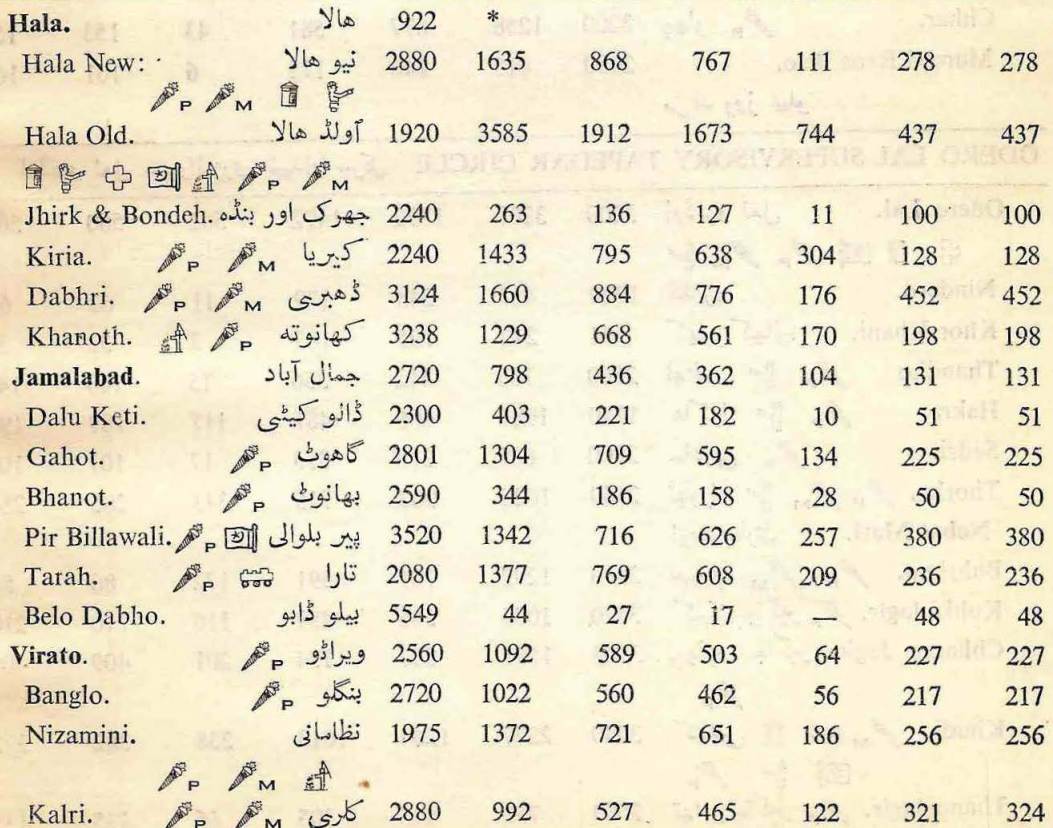 Hala. ھالا 922 *
Hala New: نیو ھالا 2880 1635 868 767 111 278 278
P M
Hala Old. آولڈ ھالا 1920 3585 1912 1673 744 437 437
P M
Jhirk & Bondeh. جھرک اور بنڈہ 2240 263 136 127 11 100 100
Kiria. P M کیریا 2240 1433 795 638 304 128 128
Dabhri. P M ڈھبری 3124 1660 884 776 176 452 452
Khanoth. P کھانوتہ 3238 1229 668 561 170 198 198
Jamalabad. جمال آباد 2720 798 436 362 104 131 131
Dalu Keti. ڈالو کیٹی 2300 403 221 182 10 51 51
Gahot. P گاھوٹ 2801 1304 709 595 134 225 225
Bhanot. P بھانوٹ 2590 344 186 158 28 50 50
Pir Billawali. P پیر بلوالی 3520 1342 716 626 257 380 380
Tarah. P تارا 2080 1377 769 608 209 236 236
Belo Dabho. بیلو ڈابو 5549 44 27 17 — 48 48
Virato. P ویراٹو 2560 1092 589 503 64 227 227
Banglo. P بنگلو 2720 1022 560 462 56 217 217
Nizamini. نظامانی 1975 1372 721 651 186 256 256
P M
Kalri. P M کلری 2880 992 527 465 122 321 324